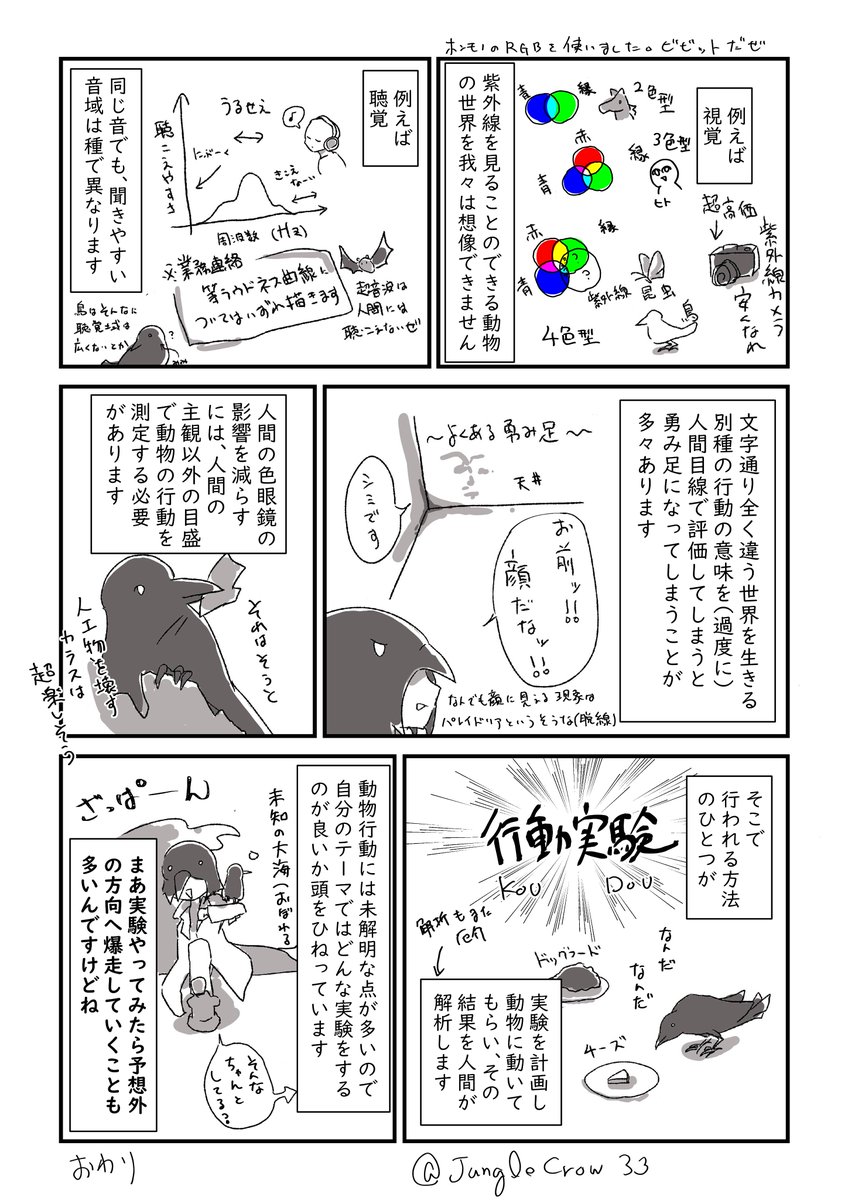 ホンモノのRGBを使いました。ビビットだぜ
例えば
視覚
紫外線を見ることのできる動物
の世界を我々は想像できません
青
緑
2色型
赤
緑
青
3色型
ヒト
赤
緑
青
紫外線
4色型
昆虫
鳥
超高価
紫外線カメラ
安くなれ
例えば
聴覚
同じ音でも、聞きやすい
音域は種で異なります
うるせえ
聴こえやすさ
にぶーく
きこえ
なーい
周波数(Hz)
※業務連絡
等ラウドネス曲線に
ついてはいずれ描きます
超音波は
人間には
聴こえないぜ
鳥はそんなに
聴覚域は
広くないとか
?
文字通り全く違う世界を生きる
別種の行動の意味を(過度に)
人間目線で評価してしまうと
勇み足になってしまうことが
多々あります
〜よくある勇み足〜
天井
シミです
お前ッ!!
顔だなッ!!
なんでも顔に見える現象は
パレイドリアというそうな(脱線)
人間の色眼鏡の
影響を減らす
には、人間の
主観以外の目盛
で動物の行動を
測定する必要
があります
それはそうと
人工物を壊す
カラスは
超楽しそう
そこで
行われる方法
のひとつが
行動実験
KOU DOU
解析もまた
厄介
ドッグフード
なんだ
なんだ
チーズ
実験を計画し
動物に動いて
もらい、その
結果を人間が
解析します
動物行動には未解明な点が多いので
自分のテーマではどんな実験をする
のが良いか頭をひねっています
ざっぱーん
未知の大海(おぼれる
まあ実験やってみたら予想外
の方向へ爆走していくことも
多いんですけどね
そんな
ちゃんと
してる?
おわり
@JungleCrow33